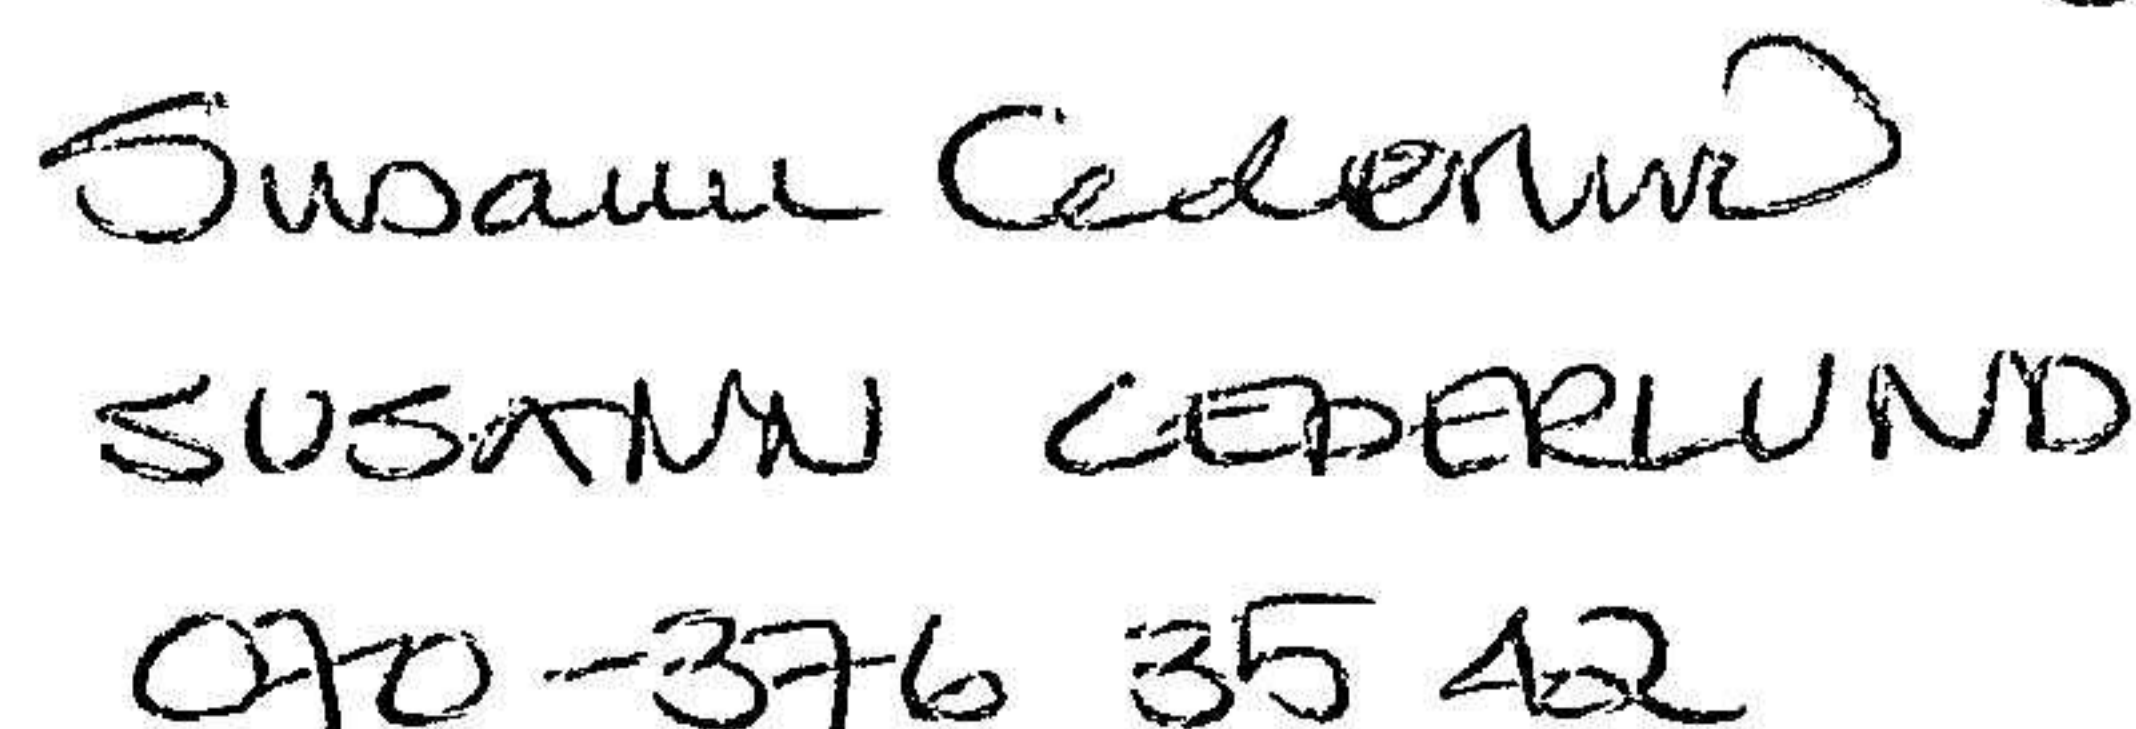 Susann Cederlund
SUSANN CEDERLUND
070-376 35 42